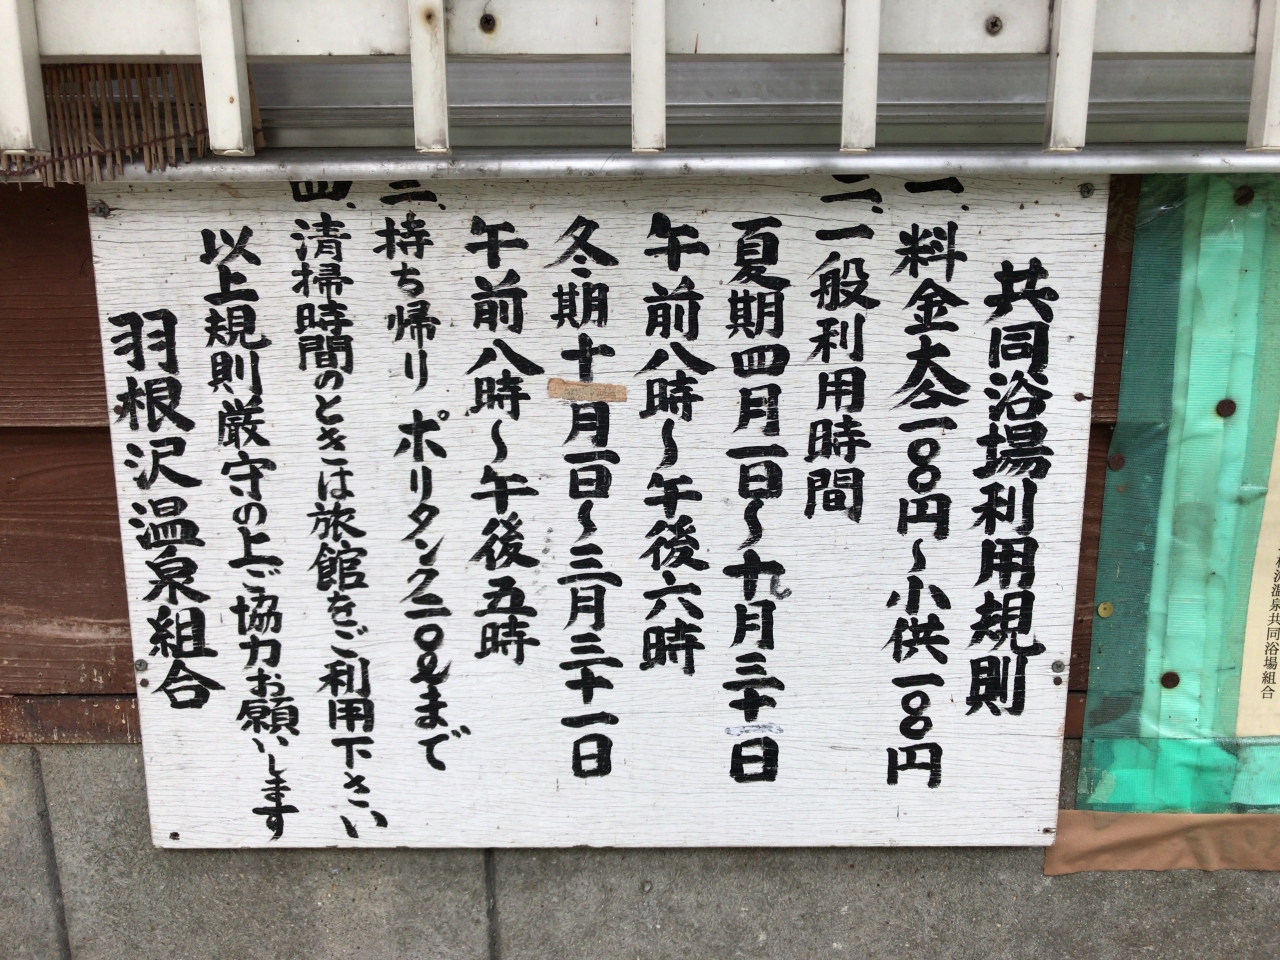 共同浴場利用規則
一、料金大人一〇〇円〜小供一〇〇円
二、一般利用時間
夏期四月一日〜九月三十日
午前八時〜午後六時
冬期十月一日〜三月三十一日
午前八時〜午後五時
三、持ち帰りポリタンク二〇ℓまで
四、清掃時間のときは旅館をご利用下さい
以上規則厳守の上ご協力お願いします
羽根沢温泉組合
温泉共同浴場組合